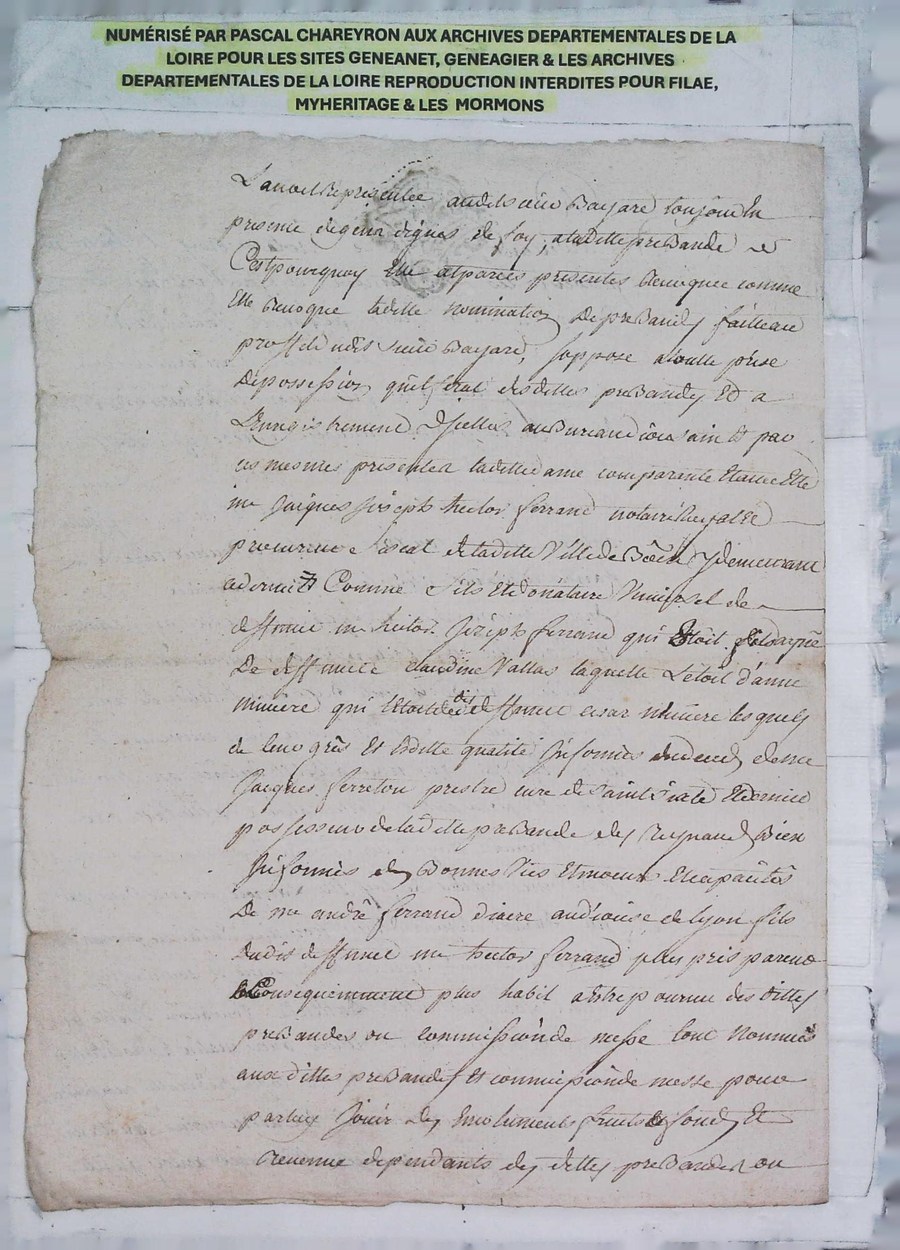 NUMÉRISÉ PAR PASCAL CHAREYRON AUX ARCHIVES DEPARTEMENTALES DE LA
LOIRE POUR LES SITES GENEANET, GENEAGIER & LES ARCHIVES
DEPARTEMENTALES DE LA LOIRE REPRODUCTION INTERDITES POUR FILAE,
MYHERITAGE & LES MORMONS
Bayard
presence de gens dignes de foy, a laditte prebande
C'est pourquoy Elle et par ces presentes revoque comme
Elle revoque laditte nomination de prebandes faitte au
proffit dudit sieur Bayard, s'oppose a toutte prise
de possession qu'il feroit desdittes prebandes Et a
L'enregistrement d'ycelles au Bureau diocesain Et par
ces mesmes presentes laditte dame comparente Et avec Elle
me Jacques joseph hector ferrand notaire Royal Et
procureur fiscal de laditte Ville de Boën y demeurant
Comme fils Et donataire Universel de
deffunct me hector Joseph ferrand qui Etoit
De deffuncte claudine Vallas laquelle L'etoit d'anne
miviere qui L'etoit de deffunct cesar miviere lesquels
de leur grès Et ditte qualité Informés du deced de me
Jacques ferreton prestre curé de Saint Et dernier
possesseur de laditte prebande des Reynaud Bien
Informés des Bonnes Vies Et moeurs Et capacités
De me andré ferrand diacre au diocese de lyon fils
dudit deffunct me hector ferrand plus pres parent
Consequemment plus habil a Estre pourvu des dittes
prebandes ou commission de messe l'ont Nommés
aux dittes prebandes Et commission de messe pour
par luy Jouir des Emoluments fruits fonds Et
revenus dependants des dittes prebandes ou